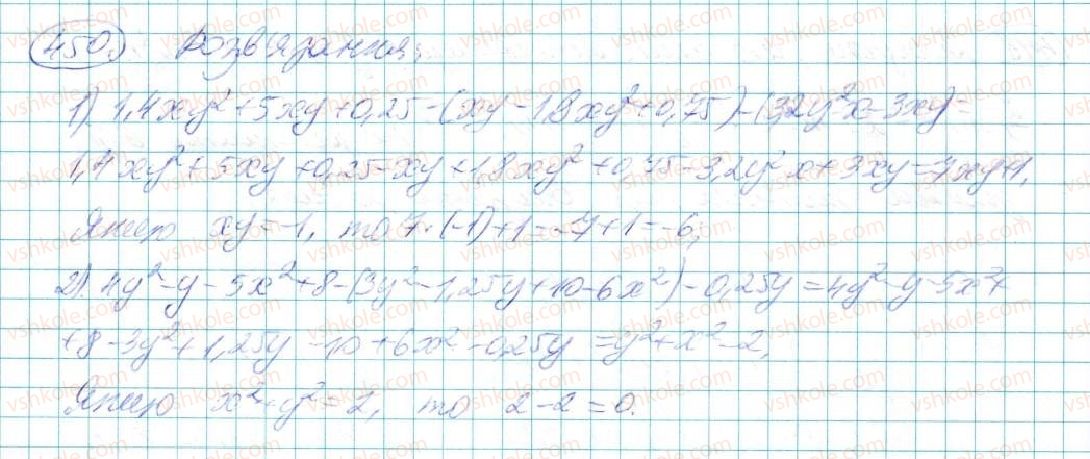 450. Розв'язання:
1) 1,4xy²+5xy+0,25-(xy-1,8xy²+0,75)-(3,2y²x-3xy)=
1,4xy²+5xy+0,25-xy+1,8xy²+0,75-3,2y²x+3xy=7xy+1,
Якщо xy=-1, то 7·(-1)+1=-7+1=-6;
2) 4y²-y-5x²+8-(3y²-1,25y+10-6x²)-0,25y=4y²-y-5x²+
+8-3y²+1,25y-10+6x²-0,25y=y²+x²-2,
Якщо x²+y²=2, то 2-2=0.